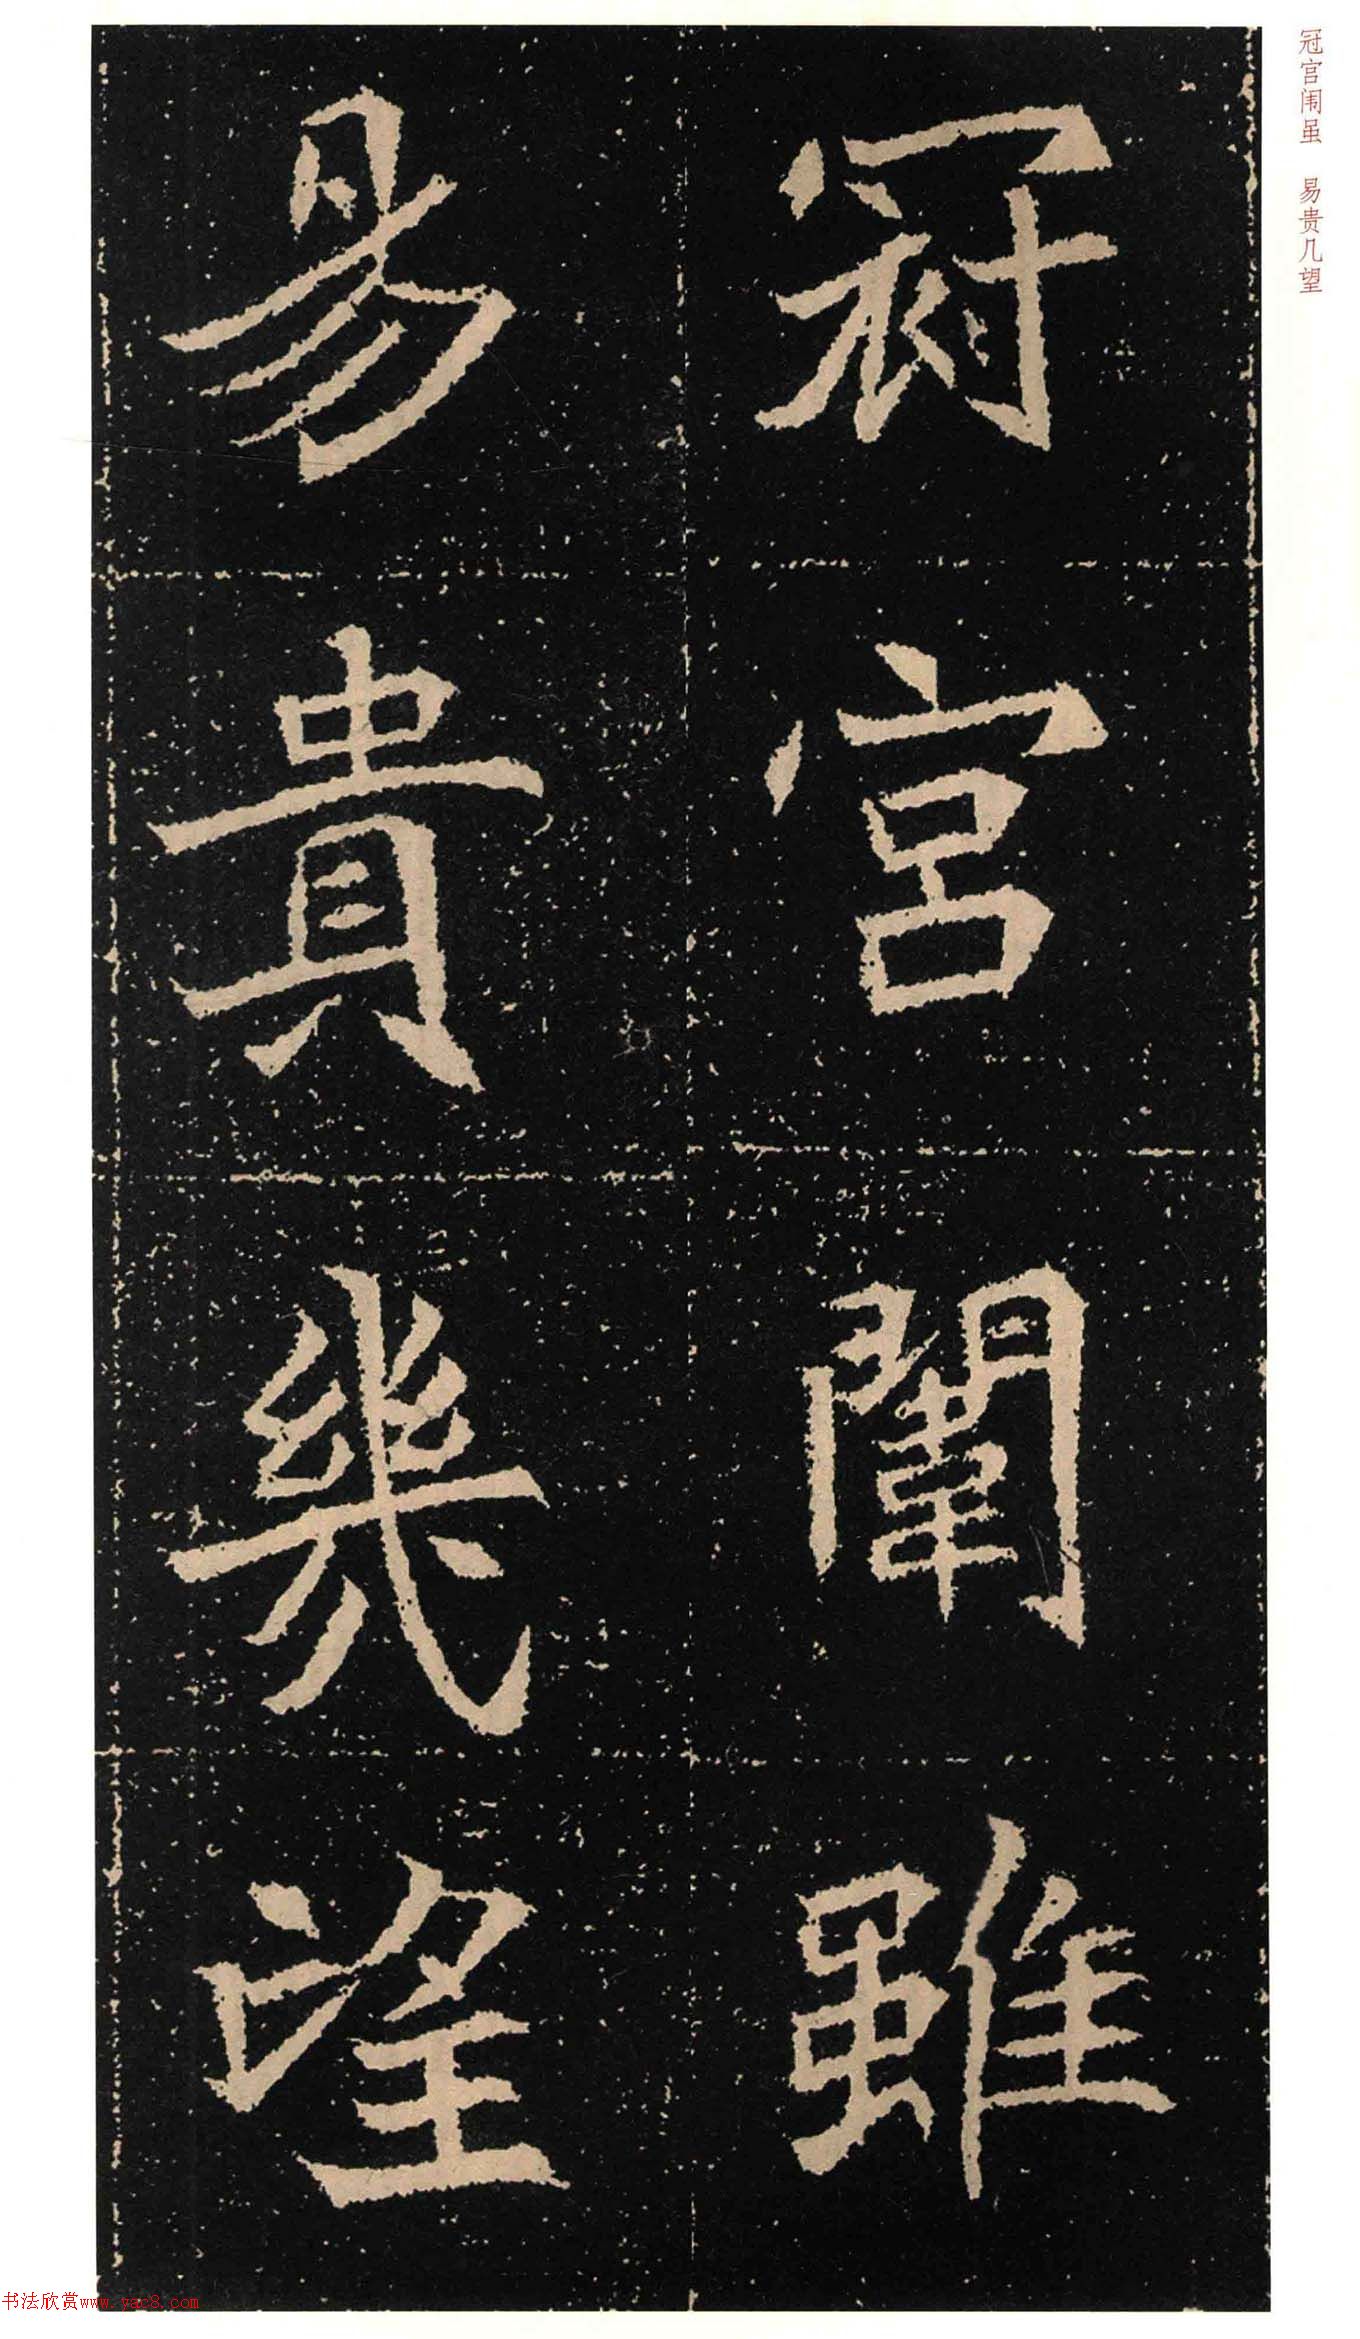 冠宫闱虽 易贵几望
冠宮闈雖
易貴幾望
书法欣赏www.yac8.com